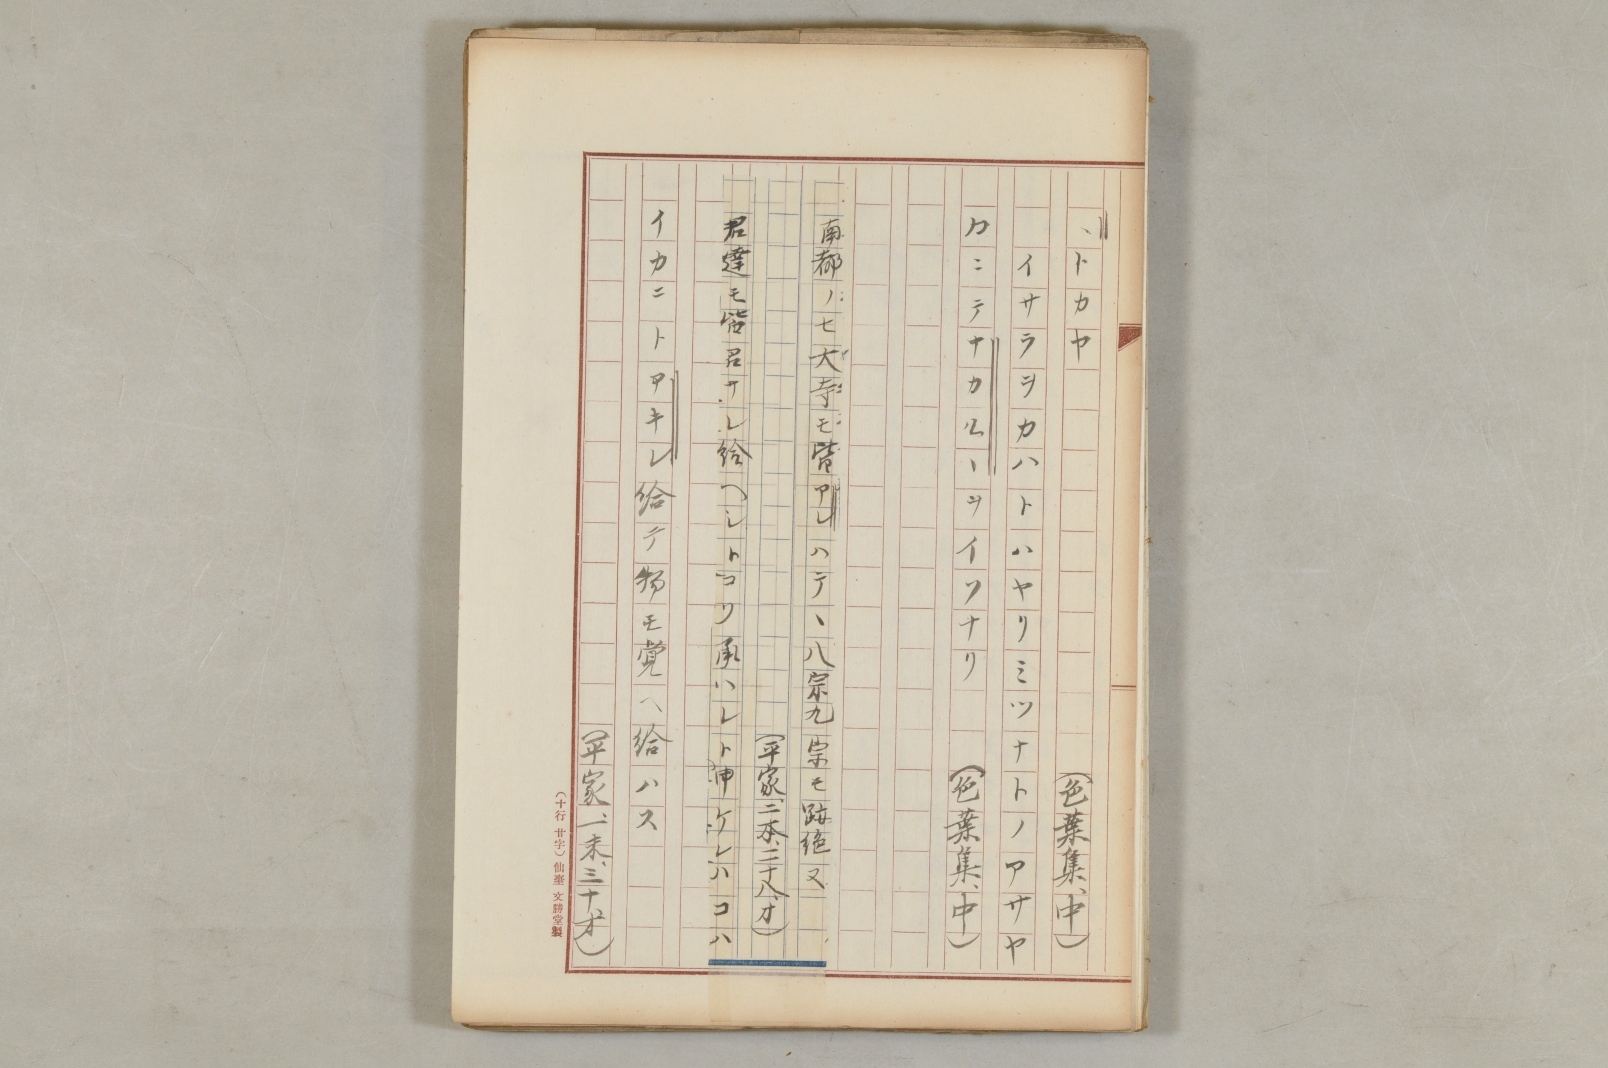 、トカヤ
（色葉集、中）
イサラヲカハトハヤリミツナトノアサヤ
カニテナカルヽヲイフナリ
（色葉集、中）
南都ノ七大寺モ皆アレハテヽ八宗九宗モ跡絶ヌ
（平家、二本、二十八、オ）
君達モ皆君サレ給ヘシトコソ承ハレト申ケレハコハ
イカニトアキレ給テ物モ覚ヘ給ハス
（平家、一末、三十、オ）
（十行 廿字）仙臺 文勝堂製